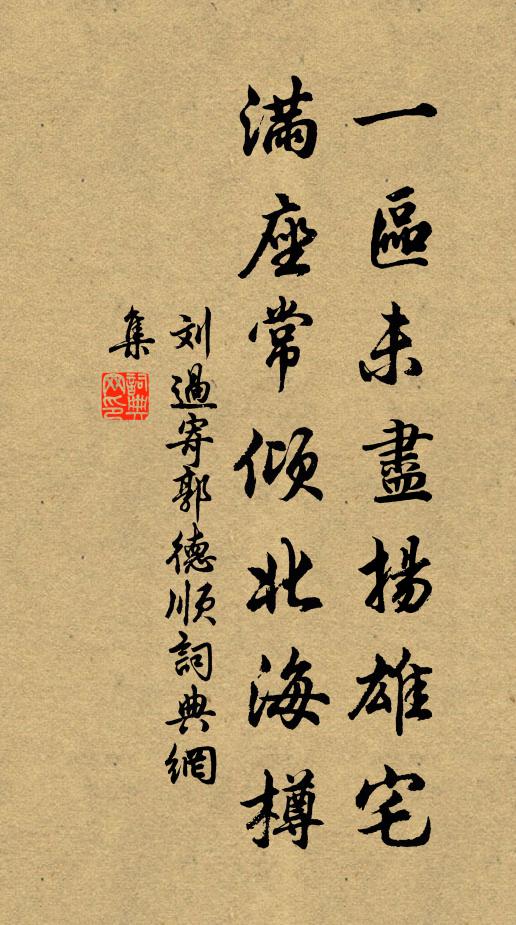 一區未盡揚雄宅
滿座常傾北海樽
刘過寄郭德順詞典網
集
詞典